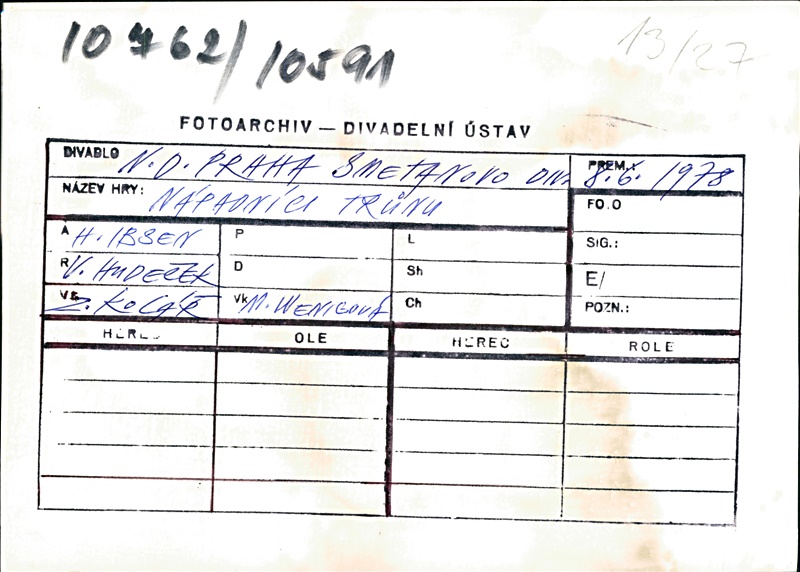 10762/10591
13/27
FOTOARCHIV — DIVADELNÍ ÚSTAV
DIVADLO N.D. PRAHA SMETANOVO DIV. PREM.: 8.6. 1978
NÁZEV HRY: NÁPADNÍCI TRŮNU FO.O
A H. IBSEN P L SIG.:
R V. HUDEČEK D Sh E/
VS Z. KOLÁŘ Vk M. WENIGOVÁ Ch POZN.:
HEREC OLE HEREC ROLE